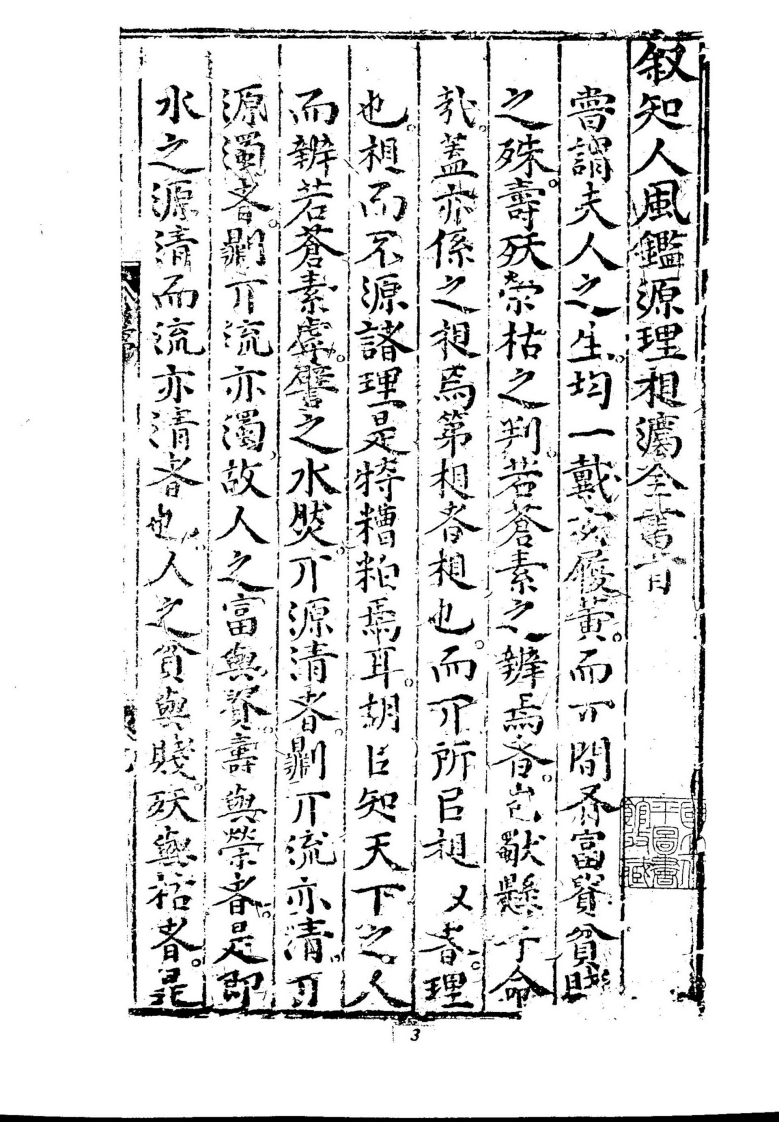 叙知人風鑑源理相灋全書旨
嘗謂夫人之生。均一戴玄履黄。而丌間有富貴貧賤
之殊。壽殀榮枯之判。若蒼素之辨焉者。豈獣懸于命
㢤。蓋亦係之相焉第相者相也。而丌所㠯相乂者。理
也。相而不源諸理。是特糟粕焉耳。胡㠯知天下之人
而辨若蒼素虖。譬之水然。丌源清者。剘丌流亦清。丌
源濁者。剘丌流亦濁。故人之富與貴。壽與榮者。是即
水之源清而流亦清者也。人之貧與賤。殀與祜者。是
圖書
3